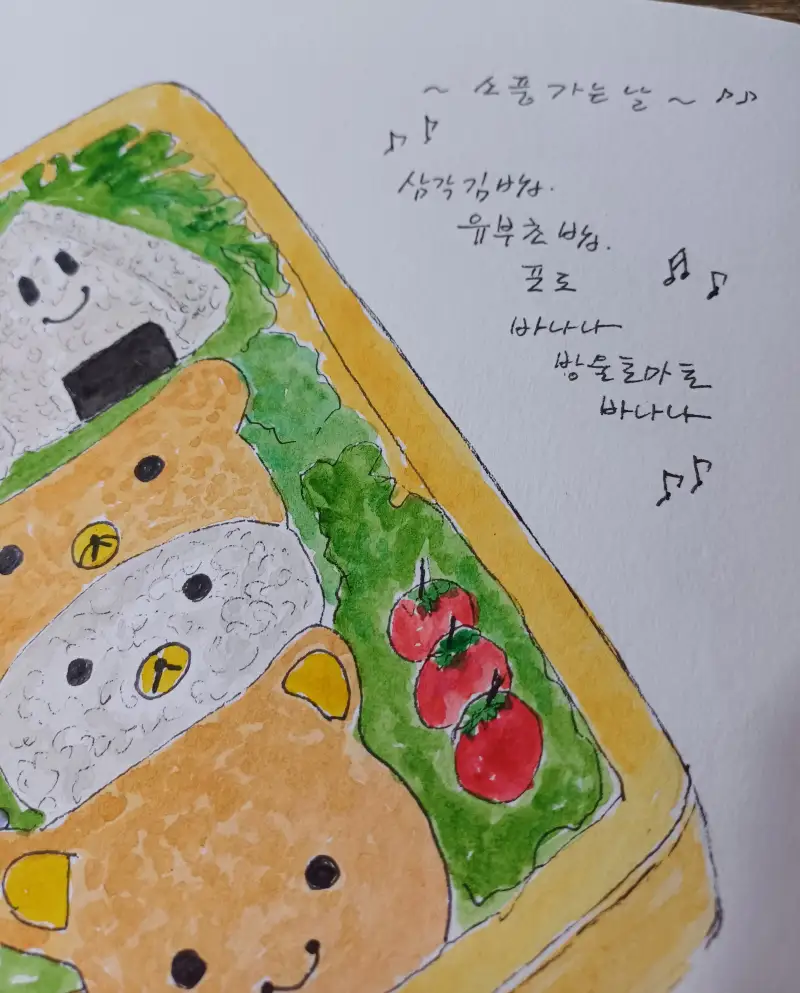 ~ 소풍 가는 날 ~
삼각김밥.
유부초밥.
포도
바나나
방울토마토
바나나